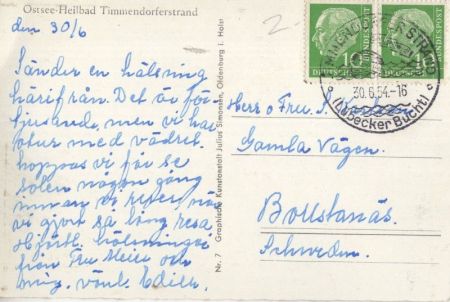 Ostsee-Heilbad Timmendorferstrand
den 30/6
Sänder en hälsning
härifrån. Det är för
tjusande, men vi har
otur med vädret.
hoppas vi får se
solen någon gång
innan vi reser, när
vi gjort så lång resa
Hjärtl. hälsningar
från Fru Meier och
mig. vänl. Edith.
2-
Herr o Fru
Gamla Vägen.
Bollstanäs.
Schweden.
Nr. 7 Graphische Kunstanstalt Julius Simonsen, Oldenburg i. Holst
10 10
DEUTSCHE BUNDESPOST
TIMMENDORFER STRAND
30.6.54.-16
(Lübecker Bucht)